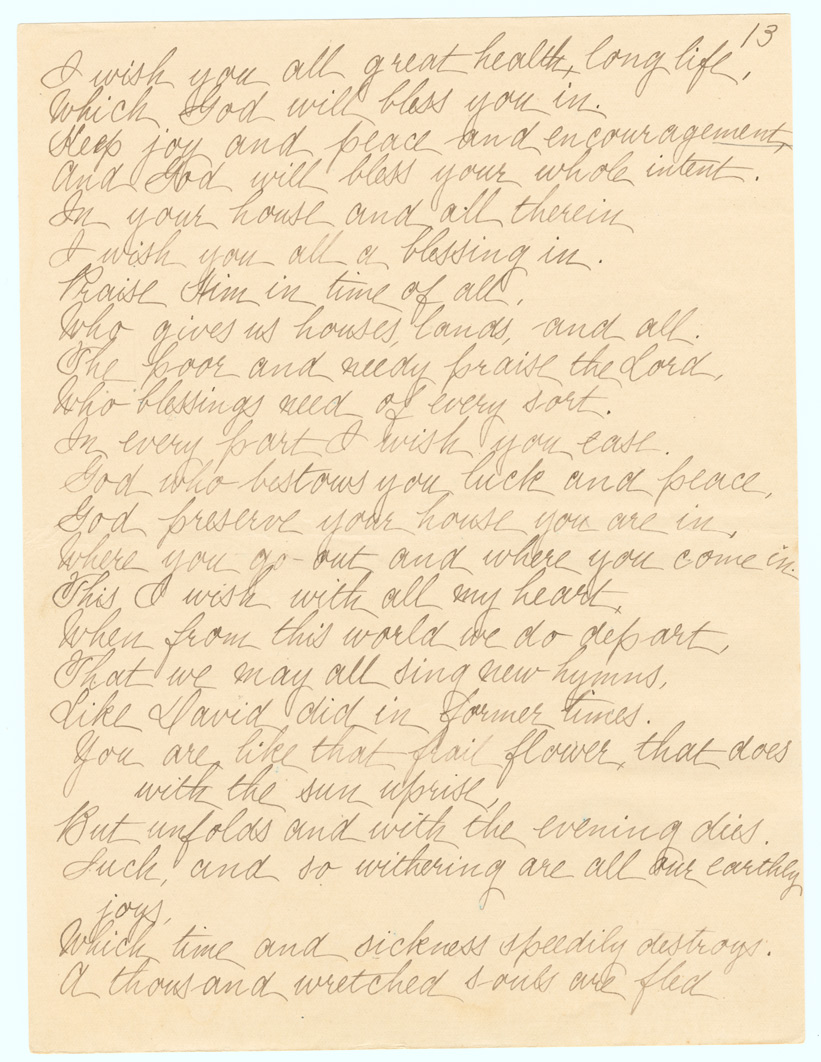 13
I wish you all great health, long life,
Which God will bless you in.
Keep joy and peace and encouragement,
And God will bless your whole intent.
In your house and all therein
I wish you all a blessing in.
Praise Him in time of all,
Who gives us houses, lands, and all.
The poor and needy praise the Lord,
Who blessings need of every sort.
In every part I wish you ease.
God who bestows you luck and peace,
God preserve your house you are in,
Where you go out and where you come in.
This I wish with all my heart,
When from this world we do depart,
That we may all sing new hymns,
Like David did in former times.
You are like that frail flower, that does
with the sun uprise,
But unfolds and with the evening dies.
Such, and so withering are all our earthly
joys,
Which time and sickness speedily destroys.
A thousand wretched souls are fled